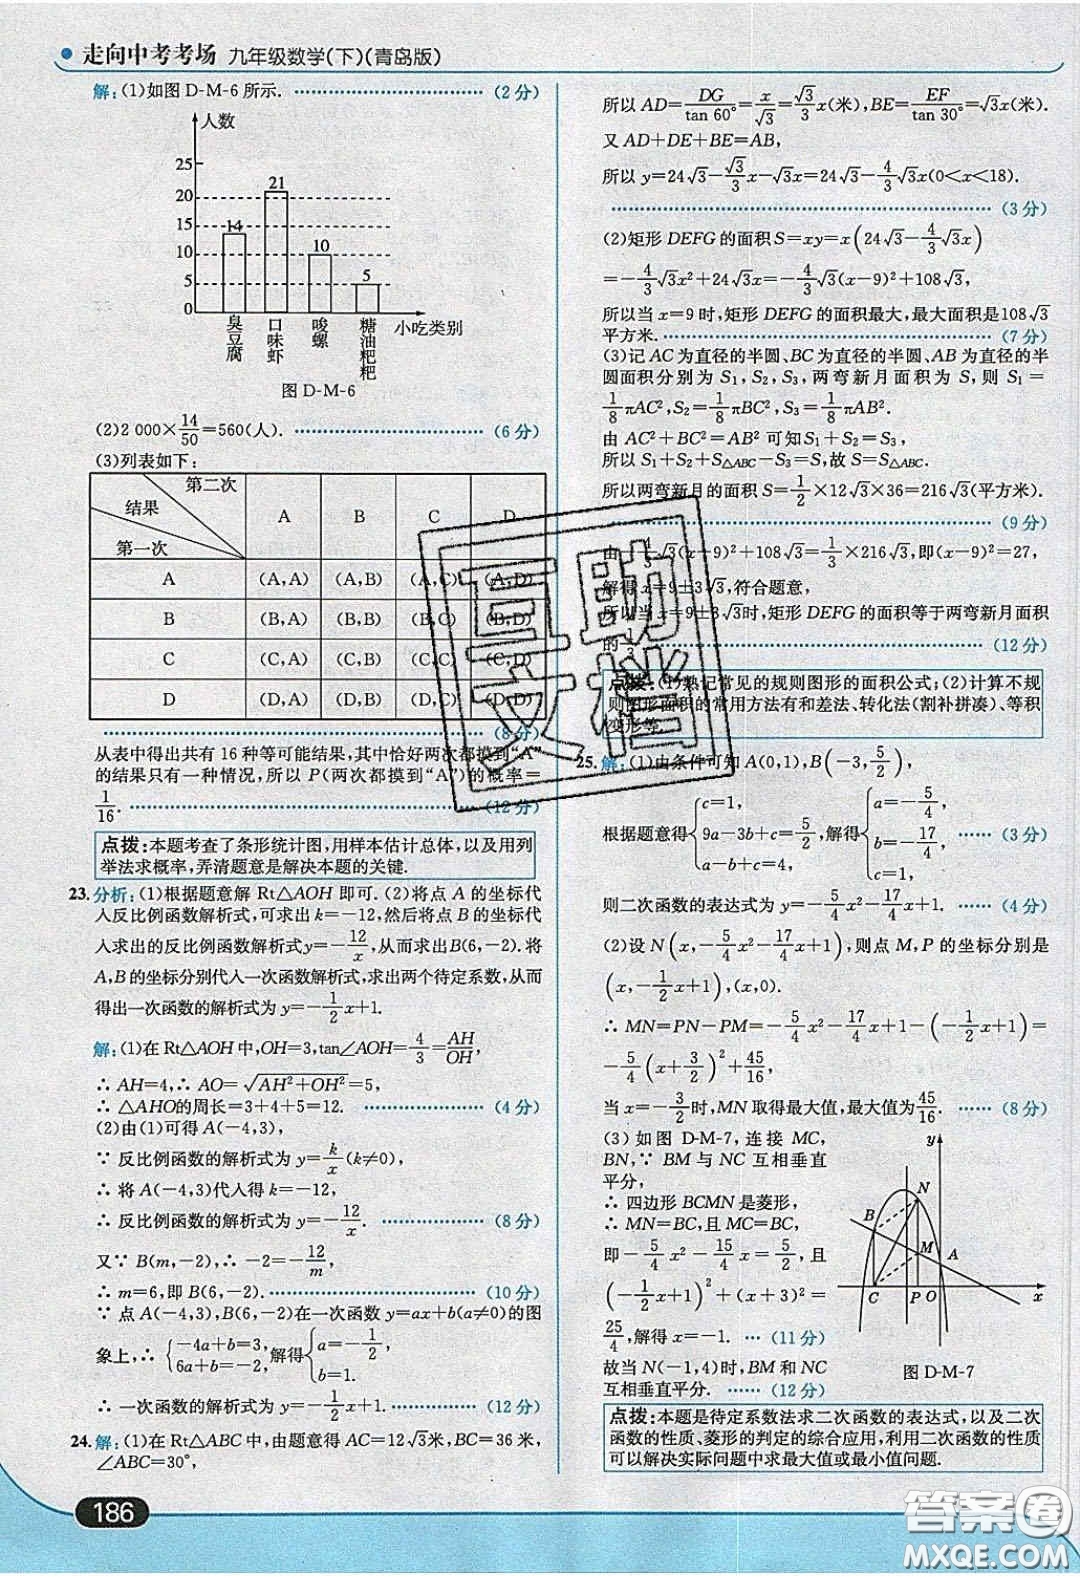 走向中考考场 九年级数学(下)(青岛版)
解:(1)如图 D-M-6 所示. (2分)
人数
25
20
15
10
5
0
14
21
10
5
臭豆腐
口味虾
唆螺
糖油粑粑
小吃类别
图 D-M-6
(2)2 000×14/50=560(人). (6分)
(3)列表如下:
第二次
结果
第一次
A B C D
A (A,A) (A,B) (A,C) (A,D)
B (B,A) (B,B) (B,C) (B,D)
C (C,A) (C,B) (C,C) (C,D)
D (D,A) (D,B) (D,C) (D,D)
(8分)
从表中得出共有 16 种等可能结果,其中恰好两次都摸到“A”
的结果只有一种情况,所以 P(两次都摸到“A”)的概率=
1/16. (12分)
点拨:本题考查了条形统计图,用样本估计总体,以及用列
举法求概率,弄清题意是解决本题的关键.
23.分析:(1)根据题意解 Rt△AOH 即可.(2)将点 A 的坐标代
入反比例函数解析式,可求出 k=-12,然后将点 B 的坐标代
入求出的反比例函数解析式y=-12/x,从而求出B(6,-2).将
A,B的坐标分别代入一次函数解析式,求出两个待定系数,从而
得出一次函数的解析式为 y=-1/2x+1.
解:(1)在 Rt△AOH 中,OH=3,tan∠AOH=4/3=AH/OH,
∴ AH=4,∴ AO=√(AH²+OH²)=5,
∴ △AHO的周长=3+4+5=12. (4分)
(2)由(1)可得 A(-4,3),
∵ 反比例函数的解析式为 y=k/x(k≠0),
∴ 将 A(-4,3)代入得 k=-12,
∴ 反比例函数的解析式为 y=-12/x. (8分)
又∵ B(m,-2),∴ -2=-12/m
∴ m=6,即 B(6,-2). (10分)
∵ 点 A(-4,3),B(6,-2)在一次函数 y=ax+b(a≠0)的图
象上,∴ {-4a+b=3, 6a+b=-2, 解得{a=-1/2, b=1.
∴ 一次函数的解析式为 y=-1/2x+1. (12分)
24.解:(1)在 Rt△ABC 中,由题意得 AC=12√3米,BC=36 米,
∠ABC=30°,
186
所以 AD=DG/tan 60°=x/√3=√3/3x(米),BE=EF/tan 30°=√3x(米).
又 AD+DE+BE=AB,
所以 y=24√3-√3/3x-√3x=24√3-4/3√3x(0<x<18).
(3分)
(2)矩形 DEFG 的面积 S=xy=x(24√3-4/3√3x)
=-4/3√3x²+24√3x=-4/3√3(x-9)²+108√3,
所以当 x=9 时,矩形 DEFG 的面积最大,最大面积是108√3
平方米. (7分)
(3)记 AC 为直径的半圆、BC 为直径的半圆、AB 为直径的半
圆面积分别为 S₁, S₂, S₃,两弯新月面积为 S,则 S₁=
1/8πAC²,S₂=1/8πBC²,S₃=1/8πAB².
由 AC²+BC²=AB² 可知S₁+S₂=S₃,
所以 S₁+S₂+S△ABC-S₃=S,故 S=S△ABC.
所以两弯新月的面积 S=1/2×12√3×36=216√3(平方米).
(9分)
由-4/3√3(x-9)²+108√3=1/3×216√3,即(x-9)²=27,
解得 x=9±3√3,符合题意,
所以当 x=9±3√3时,矩形 DEFG 的面积等于两弯新月面积
的1/3. (12分)
点拨:(1)熟记常见的规则图形的面积公式;(2)计算不规
则图形面积的常用方法有和差法、转化法(割补拼凑)、等积
变形等.
25.解:(1)由条件可知 A(0,1),B(-3,5/2),
根据题意得{c=1, 9a-3b+c=5/2, a-b+c=4, 解得{a=-5/4, b=-17/4, c=1, (3分)
则二次函数的表达式为 y=-5/4x²-17/4x+1. (4分)
(2)设 N(x,-5/4x²-17/4x+1),则点 M,P 的坐标分别是
(x,-1/2x+1),(x,0).
∴ MN=PN-PM=-5/4x²-17/4x+1-(-1/2x+1)=
-5/4(x+3/2)²+45/16
当 x=-3/2时,MN 取得最大值,最大值为45/16. (8分)
(3) 如图 D-M-7,连接 MC,
BN,∵ BM 与 NC 互相垂直
平分,
∴ 四边形 BCMN 是菱形,
∴ MN=BC,且 MC=BC,
即-5/4x²-15/4x=5/2,且
(-1/2x+1)²+(x+3)²=
25/4,解得 x=-1. (11分)
故当 N(-1,4)时,BM 和 NC
互相垂直平分. (12分)
y
N
B
M
A
C
P
O
x
图 D-M-7
点拨:本题是待定系数法求二次函数的表达式,以及二次
函数的性质、菱形的判定的综合应用,利用二次函数的性质
可以解决实际问题中求最大值或最小值问题.
答案圈
MXQE.COM